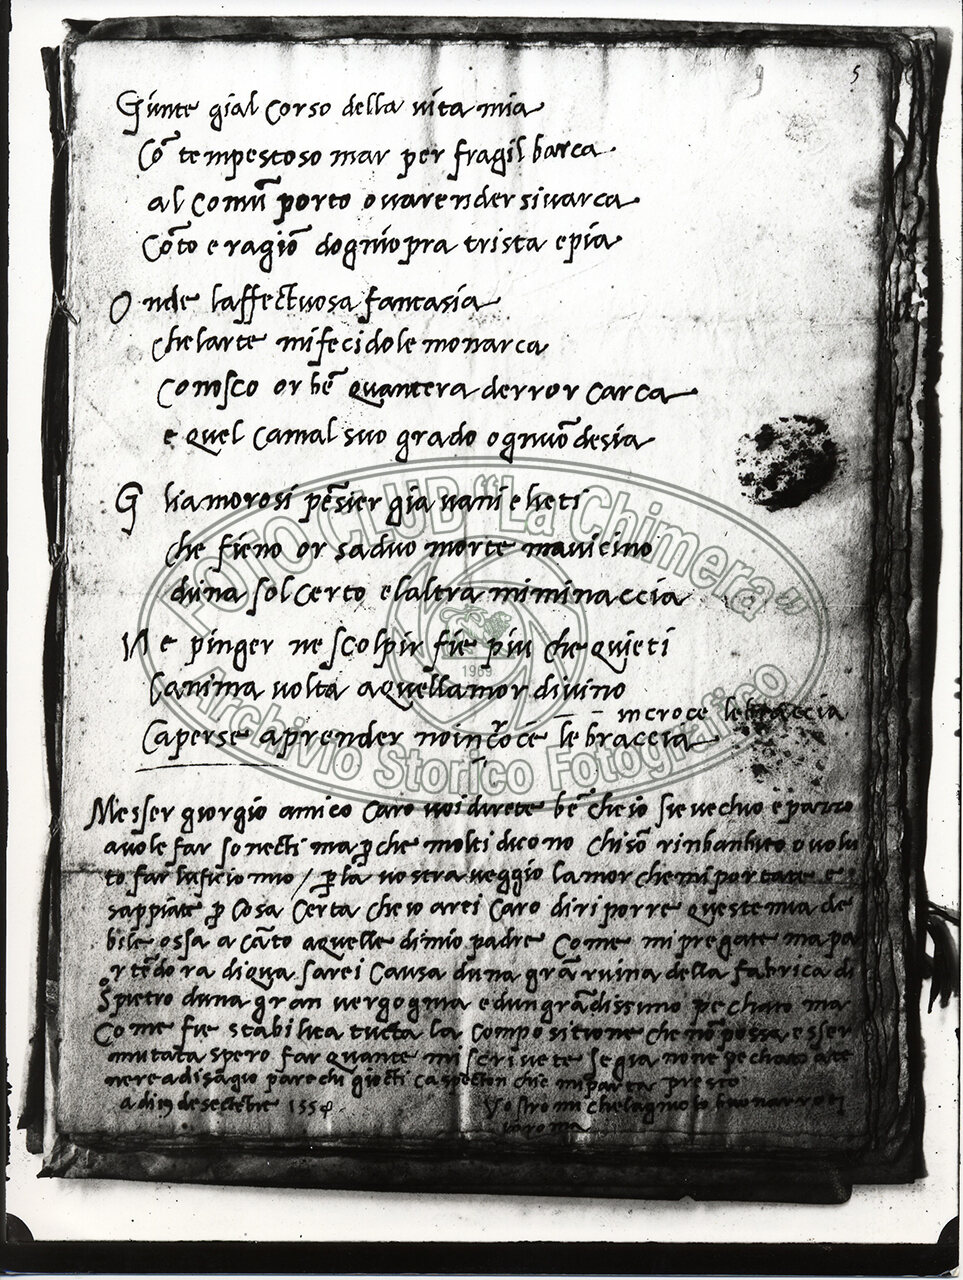 9 5
Giunte gial corso della vita mia
Cō tempestoso mar per fragil barca
al Comū porto ovarender sivarca
Cōto e ragiō dogniopra trista epia
Onde laffectuosa fantasia
chelarte mifecidole monarca
Conosco or bē quantera derror carca
e quel Camal suo grado ognuō desia
Gliamorosi pēsier gia vani elieti
che fieno or saduo morte mavicino
duna sol certo elaltra miminaccia
Ne pinger ne scolpir fie piu che quieti
Lanima volta aquellamor divino
in croce le braccia
Caperse aprender noi incroce le braccia
Messer giorgio amico Caro voi direte bē cheio sie vechio e pazzo
avole far sonecti ma p che molti dicono chisō rinbanbito o volu
to far luficio mio / p la vostra veggio lamor chemi portate e
sappiate p Cosa Certa cheio arei Caro diriporre queste mia de
bile ossa a cāto aquelle dimio padre Come mi pregate ma pa
rtēdo ra diqua sarei Causa duna grā ruina della fabrica di
Sº pietro duna gran vergognia edungrādissimo pechato ma
Come fie stabilita tucta la compositione che nō possa esser
mutata spero far quante mi scrivete se gia none pechato atte
nere adisagio parechi giocti caspecton che miparta presto
adi 19 desectēbre 1554
Vostro michelagniolo buonarroti
in roma
FOTO CLUB "La Chimera"
1969
Archivio Storico Fotografico